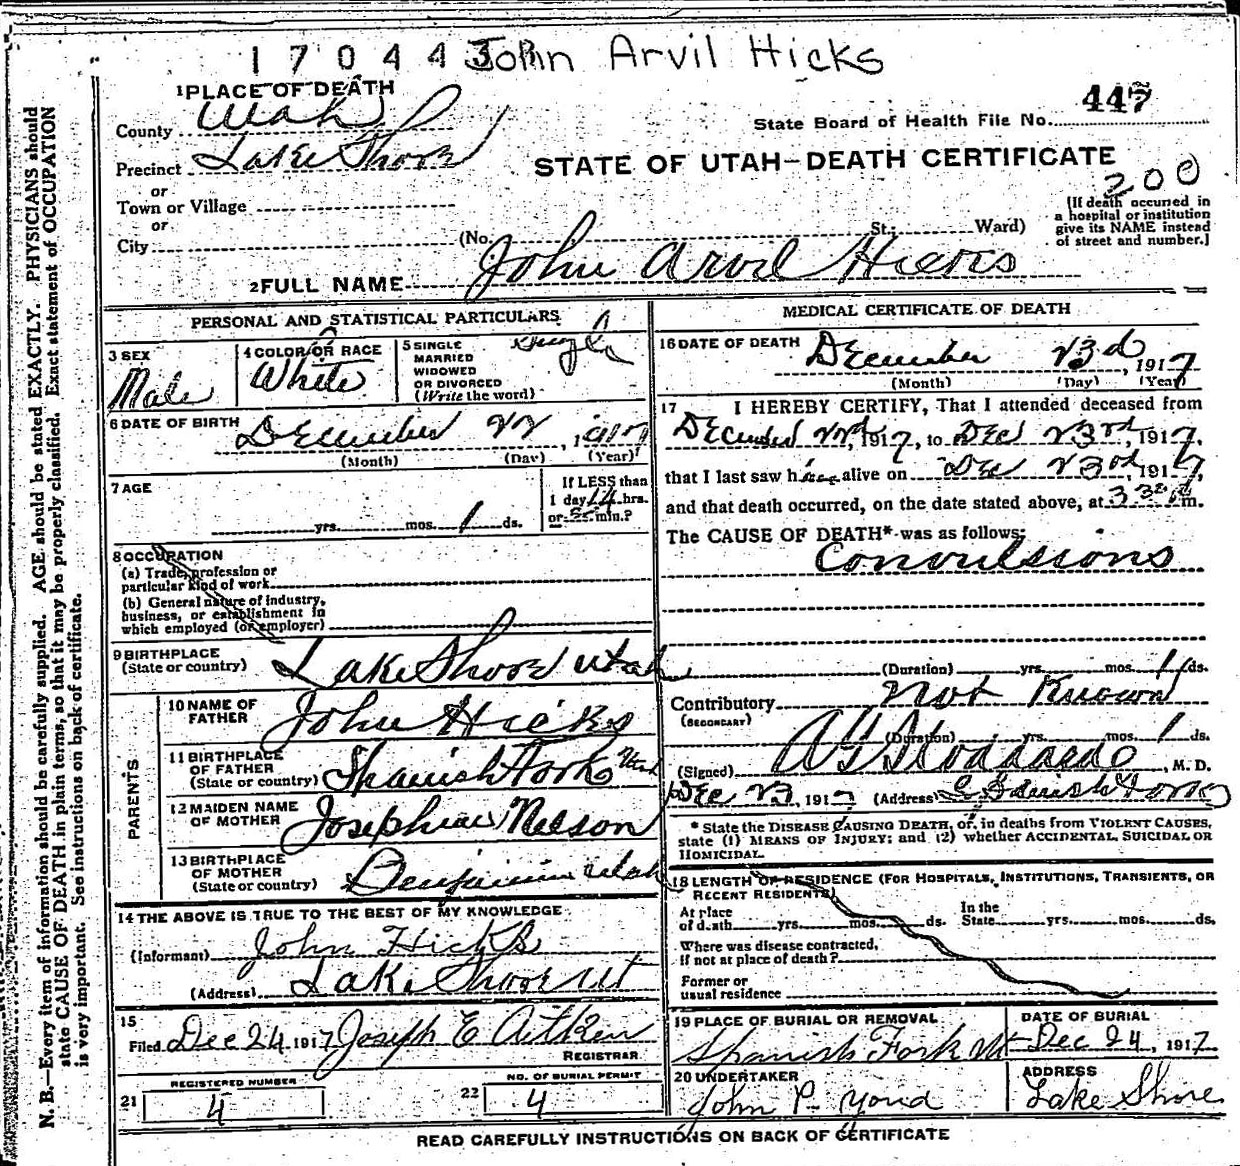 170443 John Arvil Hicks
1 PLACE OF DEATH
447
County Utah
State Board of Health File No.
Precinct Lake Shore
STATE OF UTAH—DEATH CERTIFICATE
or
200
Town or Village
(If death occurred in
a hospital or institution
give its NAME instead
of street and number.]
or
City (No. St.; Ward)
2 FULL NAME John Arvil Hicks
PERSONAL AND STATISTICAL PARTICULARS
3 SEX
Male
4 COLOR OR RACE
White
5 SINGLE
MARRIED
WIDOWED
OR DIVORCED
(Write the word)
Single
6 DATE OF BIRTH December 22, 1917
(Month) (Day) (Year)
7 AGE
yrs. mos. 1 ds.
If LESS than
1 day 14 hrs.
or min.?
8 OCCUPATION
(a) Trade, profession or
particular kind of work
(b) General nature of industry,
business, or establishment in
which employed (or employer)
9 BIRTHPLACE
(State or country) Lake Shore Utah
PARENTS
10 NAME OF
FATHER John Hicks
11 BIRTHPLACE
OF FATHER
(State or country) Spanish Fork Utah
12 MAIDEN NAME
OF MOTHER Josephine Nelson
13 BIRTHPLACE
OF MOTHER
(State or country) Benjamin Utah
14 THE ABOVE IS TRUE TO THE BEST OF MY KNOWLEDGE
(Informant) John Hicks
(Address) Lake Shore Ut
15
Filed Dec 24 1917 Joseph E Aitken
REGISTRAR
REGISTERED NUMBER
21 4
NO. OF BURIAL PERMIT
22 4
MEDICAL CERTIFICATE OF DEATH
16 DATE OF DEATH December 23d, 1917
(Month) (Day) (Year)
17 I HEREBY CERTIFY, That I attended deceased from
December 22nd, 1917, to Dec 23rd, 1917,
that I last saw him alive on Dec 23rd, 1917,
and that death occurred, on the date stated above, at 3 30 m.
The CAUSE OF DEATH* was as follows:
Convulssions
(Duration) yrs. mos. 1 ds.
Contributory Not Known
(SECONDARY)
(Duration) yrs. mos. 1 ds.
(Signed) A G Stoddard, M. D.
Dec 23, 1917 (Address) Spanish Fork
* State the DISEASE CAUSING DEATH, or, in deaths from VIOLENT CAUSES,
state (1) MEANS OF INJURY; and (2) whether ACCIDENTAL, SUICIDAL OR
HOMICIDAL.
18 LENGTH OF RESIDENCE (FOR HOSPITALS, INSTITUTIONS, TRANSIENTS, OR
RECENT RESIDENTS)
At place
of death yrs. mos. ds.
In the
State yrs. mos. ds.
Where was disease contracted,
if not at place of death?
Former or
usual residence
19 PLACE OF BURIAL OR REMOVAL
Spanish Fork Ut
DATE OF BURIAL
Dec 24, 1917
20 UNDERTAKER
John P
ADDRESS
Lake Shore
READ CAREFULLY INSTRUCTIONS ON BACK OF CERTIFICATE
N. B.—Every item of information should be carefully supplied. AGE should be stated EXACTLY. PHYSICIANS should
state CAUSE OF DEATH in plain terms, so that it may be properly classified. Exact statement of OCCUPATION
is very important. See instructions on back of certificate.